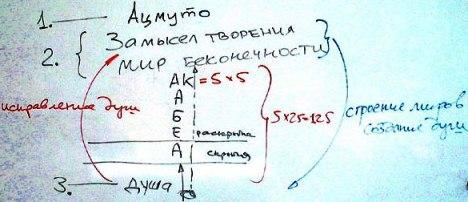 1. — Ацмуто
2. { Замысел творения
мир бесконечности }
АК = 5 x 5
А
Б
Е раскрытия
А скрытия
3. — душа
исправление души
5x25=125
строение миров
создание души